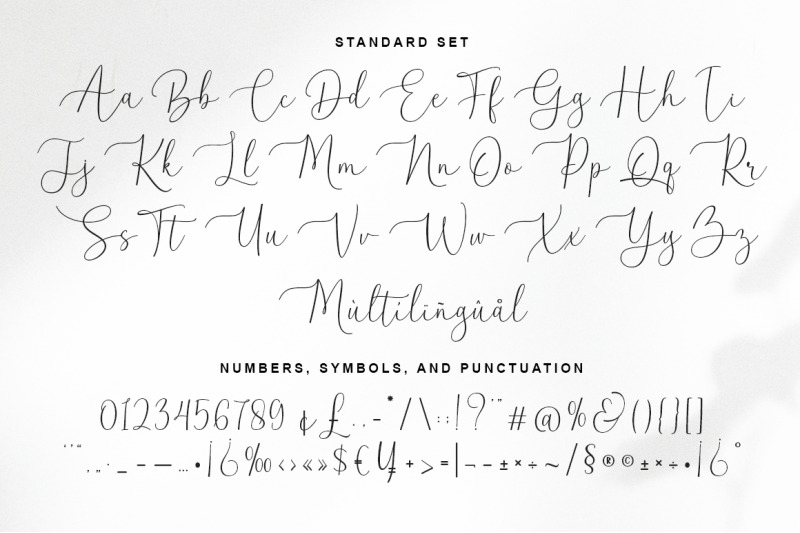 STANDARD SET
Aa Bb Cc Dd Ee Ff Gg Hh Ii
Jj Kk Ll Mm Nn Oo Pp Qq Rr
Ss Tt Uu Vv Ww Xx Yy Zz
Mùltilïñgûål
NUMBERS, SYMBOLS, AND PUNCTUATION
0123456789 ¢ £ . . - * / \ : ; ! ? " ' # @ % & ( ) { } [ ]
„ · _ – — … • ¡ ¿ ‰ ‹ › « » $ € ¥ + > = | ¬ - ± × ÷ ~ / § ® © ± × ÷ • ¡ ¿ °